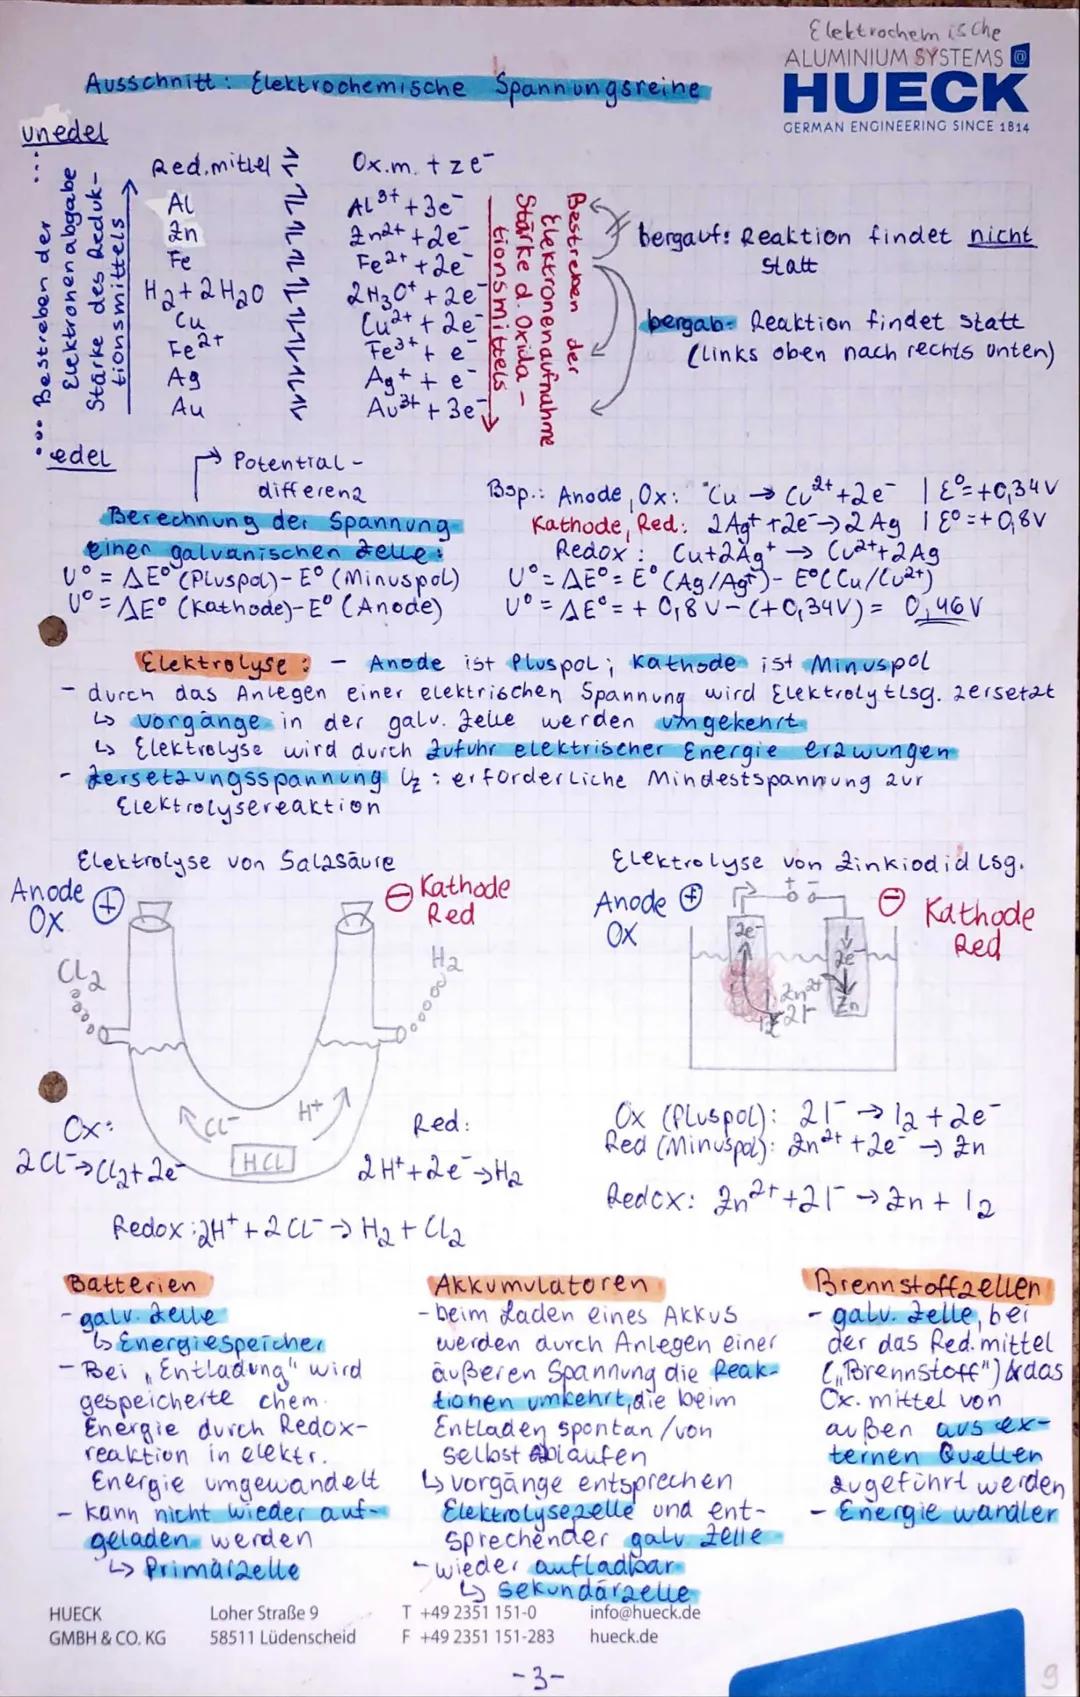 Elektrochemische
ALUMINIUM SYSTEMS
HUECK
GERMAN ENGINEERING SINCE 1814
Ausschnitt: Elektrochemische Spannungsreine
unedel
... Bestreben der
Elektronenabgabe
Stärke des Reduk-
tionsmittels
Red.mittel ⇌ Ox.m. + ze⁻
Al ⇌ Al³⁺ + 3e⁻
Zn ⇌ Zn²⁺ + 2e⁻
Fe ⇌ Fe²⁺ + 2e⁻
H₂ + 2H₂O ⇌ 2H₃O⁺ + 2e⁻
Cu ⇌ Cu²⁺ + 2e⁻
Fe²⁺ ⇌ Fe³⁺ + e⁻
Ag ⇌ Ag⁺ + e⁻
Au ⇌ Au³⁺ + 3e⁻
... edel
Bestreben der
Elektronenaufnahme
Stärke d. Oxida-
tionsmittels
bergauf: Reaktion findet nicht
statt
bergab: Reaktion findet statt
(links oben nach rechts unten)
Potential-
differenz
Berechnung der Spannung
einer galvanischen Zelle:
U⁰ = ΔE⁰ (Pluspol) - E⁰ (Minuspol)
U⁰ = ΔE⁰ (Kathode) - E⁰ (Anode)
Bsp.: Anode, Ox: Cu → Cu²⁺ + 2e⁻ | E⁰ = +0,34V
Kathode, Red: 2Ag⁺ + 2e⁻ → 2Ag | E⁰ = +0,8V
Redox: Cu + 2Ag⁺ → Cu²⁺ + 2Ag
U⁰ = ΔE⁰ = E⁰ (Ag/Ag⁺) - E⁰ (Cu/Cu²⁺)
U⁰ = ΔE⁰ = + 0,8V - (+0,34V) = 0,46V
Elektrolyse: - Anode ist Pluspol; Kathode ist Minuspol
- durch das Anlegen einer elektrischen Spannung wird Elektrolytlsg. zersetzt
↳ Vorgänge in der galv. Zelle werden umgekehrt
↳ Elektrolyse wird durch Zufuhr elektrischer Energie erzwungen
- Zersetzungsspannung Uz: erforderliche Mindestspannung zur
Elektrolysereaktion
Elektrolyse von Salzsäure
Anode ⊕
Ox
⊖ Kathode
Red
Cl₂
H₂
Cl⁻
H⁺
HCl
Ox:
2Cl⁻ → Cl₂ + 2e⁻
Red:
2H⁺ + 2e⁻ → H₂
Redox: 2H⁺ + 2Cl⁻ → H₂ + Cl₂
Elektrolyse von Zinkiodid Lsg.
Anode ⊕
Ox
+ -
⊖ Kathode
Red
2e⁻
2e⁻
Zn²⁺
Zn
I₂
2I⁻
Ox (Pluspol): 2I⁻ → I₂ + 2e⁻
Red (Minuspol): Zn²⁺ + 2e⁻ → Zn
Redox: Zn²⁺ + 2I⁻ → Zn + I₂
Batterien
- galv. Zelle
↳ Energiespeicher
- Bei „Entladung" wird
gespeicherte chem.
Energie durch Redox-
reaktion in elektr.
Energie umgewandelt
- kann nicht wieder auf-
geladen werden
↳ Primärzelle
Akkumulatoren
- beim Laden eines Akkus
werden durch Anlegen einer
äußeren Spannung die Reak-
tionen umkehrt, die beim
Entladen spontan/von
selbst ablaufen
↳ Vorgänge entsprechen
Elektrolysezelle und ent-
sprechender galv. Zelle
- wieder aufladbar
↳ Sekundärzelle
Brennstoffzellen
- galv. Zelle, bei
der das Red.mittel
(„Brennstoff") & das
Ox. mittel von
außen aus ex-
ternen Quellen
zugeführt werden
- Energie wandler
HUECK Loher Straße 9 T +49 2351 151-0 info@hueck.de
GMBH & CO. KG 58511 Lüdenscheid F +49 2351 151-283 hueck.de
-3-
9